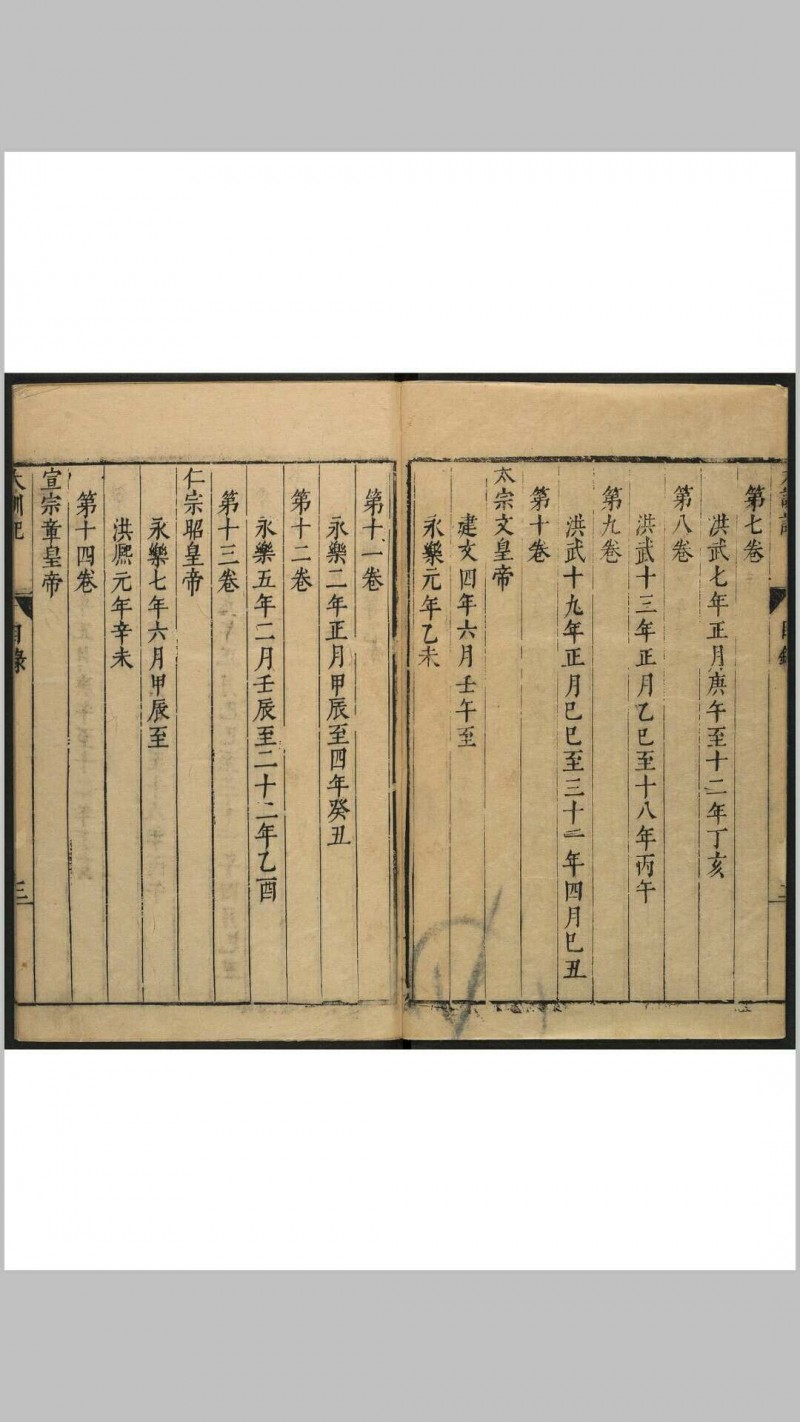 第七卷
洪武七年正月庚午至十二年丁亥
第八卷
洪武十三年正月乙巳至十八年丙午
第九卷
洪武十九年正月巳巳至三十一年四月巳丑
第十卷
太宗文皇帝
建文四年六月壬午至
永樂元年乙未
第十一卷
永樂二年正月甲辰至四年癸丑
第十二卷
永樂五年二月壬辰至二十二年乙酉
第十三卷
仁宗昭皇帝
永樂七年六月甲辰至
洪熈元年辛未
第十四卷
宣宗章皇帝
大訓記 目錄 三